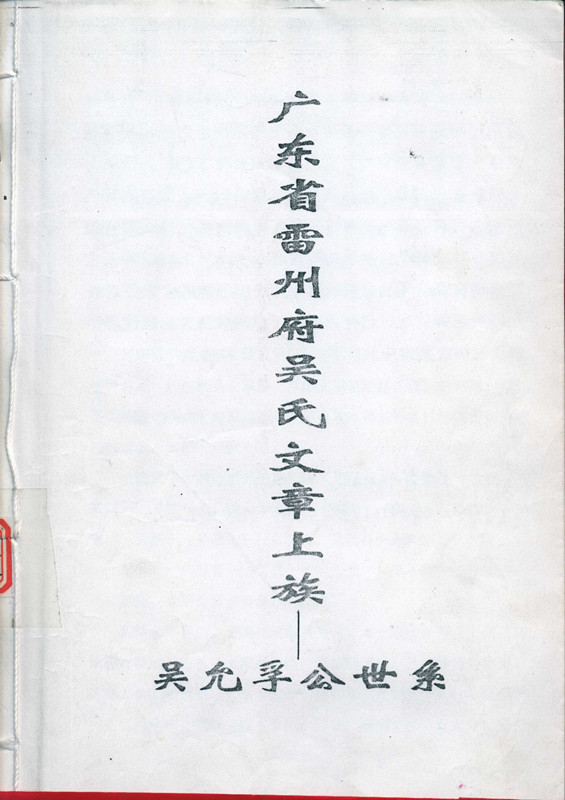 广东省雷州府吴氏文章上族——
吴允孚公世系